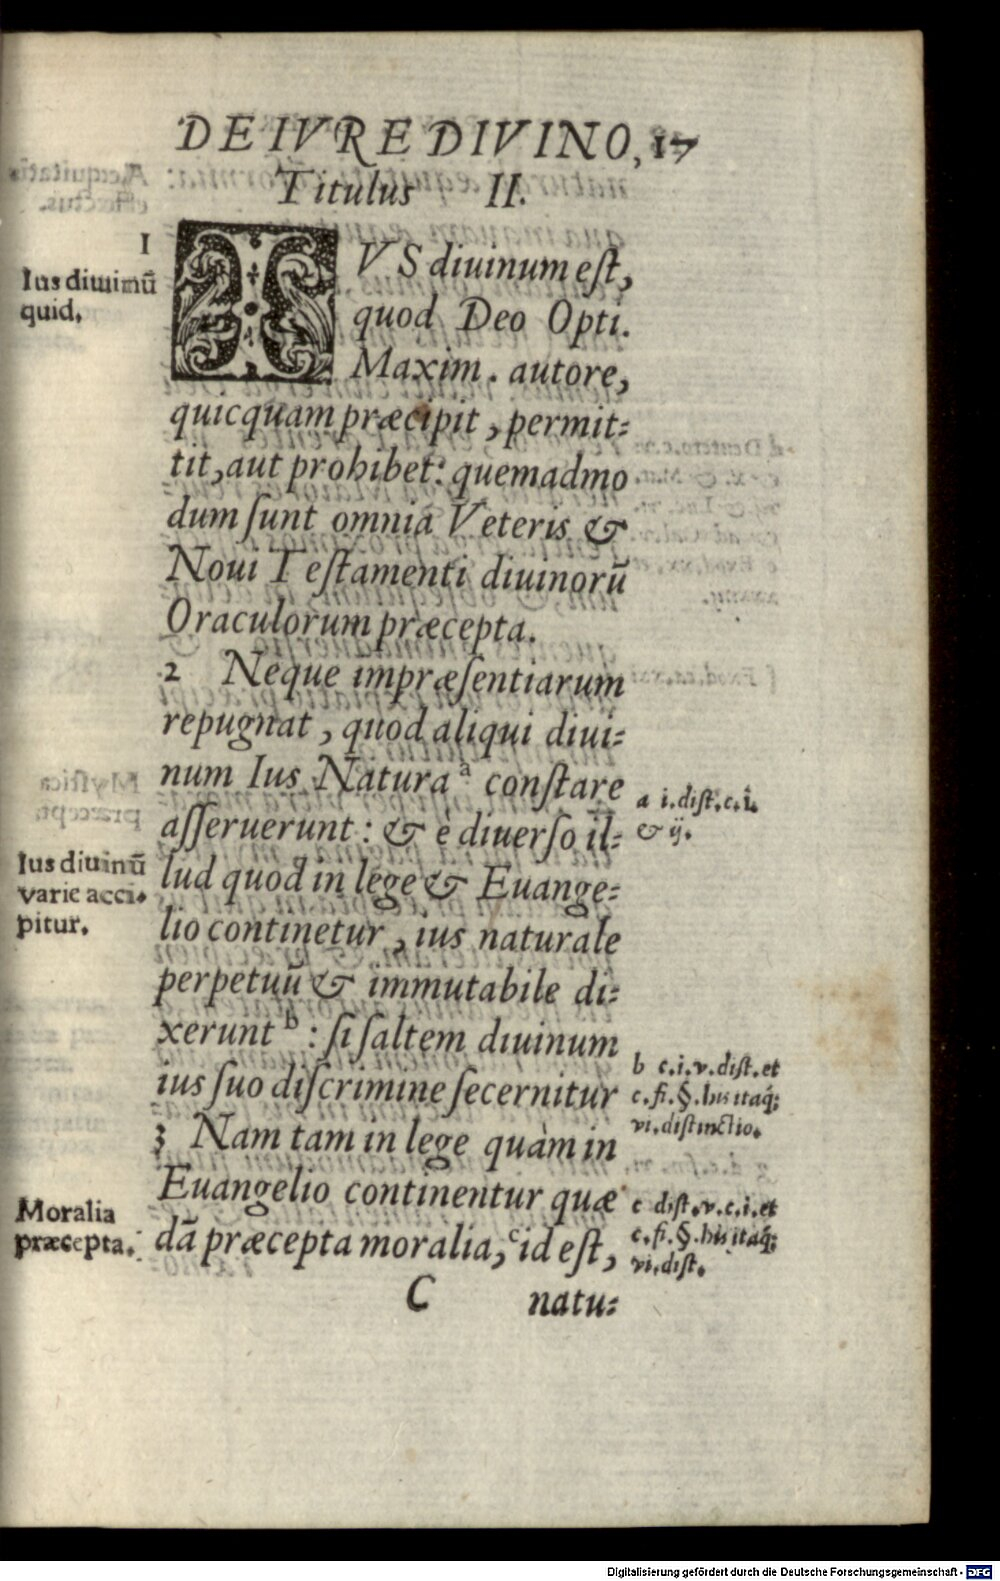 DE IVRE DIVINO, 17
Titulus II.
1
Ius diuinū
quid.
IVS diuinum eſt,
quod Deo Opti.
Maxim. autore,
quicquam præcipit, permit-
tit, aut prohibet: quemadmo
dum ſunt omnia Veteris &
Noui Teſtamenti diuinorū
Oraculorum præcepta.
2 Neque impræſentiarum
repugnat, quod aliqui diui-
num Ius Natura a conſtare
aſſeruerunt: & è diuerſo il-
lud quod in lege & Euange-
lio continetur, ius naturale
perpetuū & immutabile di-
xerunt b: ſi ſaltem diuinum
ius ſuo diſcrimine ſecernitur
3 Nam tam in lege quàm in
Euangelio continentur quæ
dā præcepta moralia, c id eſt,
C natu-
Ius diuinū
varie acci-
pitur.
Moralia
præcepta.
a i.diſt.c.i.
& ij.
b c.i.v.diſt.et
c.fi.§.his itaq;
vi.diſtinctio.
c diſt.v.c.i.et
c.fi.§.his itaq;
vi.diſt.
Digitalisierung gefördert durch die Deutsche Forschungsgemeinschaft - DFG